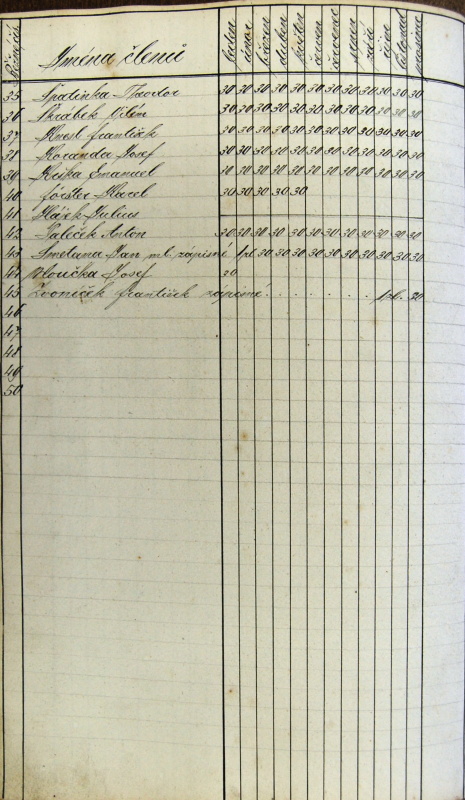 Jména členů leden únor březen duben květen červen červenec srpen září říjen listopad prosinec
35 Špatinka Theodor 30 30 30 30 30 30 30 30 30 30 30 30
36 Škrabek Vilém 30 30 30 30 30 30 30 30 30 30 30 30
37 František 30 30 30 30 30 30 30 30 30 30 30 30
38 Koranda Josef 30 30 30 30 30 30 30 30 30 30 30 30
39 Emanuel 30 30 30 30 30 30 30 30 30 30 30 30
40 Förster Karel 30 30 30 30 30
41 Hájek Julius
42 Paleček Anton 30 30 30 30 30 30 30 30 30 30 30 30
43 Smetana Jan ml. zápisné 1 zl. 30 30 30 30 30 30 30 30 30 30
44 Josef 30
45 Zvoníček František zápisné . . . . . . . 1 zl. 30
46
47
48
49
50